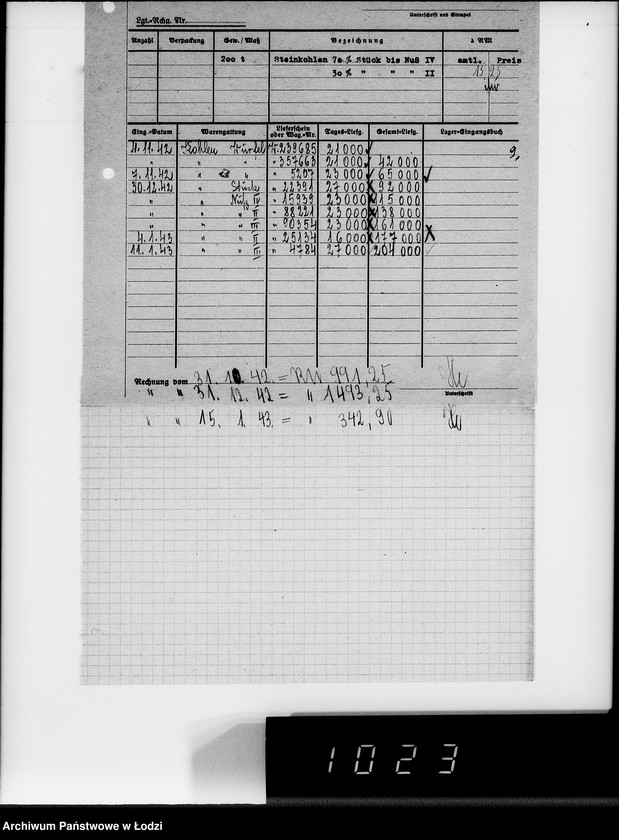 Unterschrift und Stempel
Lgt.-Rchg. Nr.
Anzahl Verpackung Gew. / Maß Bezeichnung à RM
200 t Steinkohlen 70 % Stück bis Nuß IV amtl. Preis
30 % " " " II 15 25
Eing.-Datum Warengattung Lieferschein oder Wag.-Nr. Tages-Liefg. Gesamt-Liefg. Lager-Eingangsbuch
4.11.42 Kohlen Würfel 239685 21 000 9,
" " " " 357663 21 000 42 000
7.11.42 " " " 5207 23 000 65 000
30.12.42 " Stück " 22391 27 000 92 000
" " Nuß IV " 15939 23 000 115 000
" " " II " 88221 23 000 138 000
" " " III " 90354 23 000 161 000
4.1.43 " " II " 25134 16 000 177 000
11.1.43 " " III " 4784 27 000 204 000
Rechnung vom 31. 10. 42. = RM 991,25
" " 31. 12. 42 = " 1493,25
Unterschrift
" " 15. 1. 43 = " 342,90
1023
Archiwum Państwowe w Łodzi